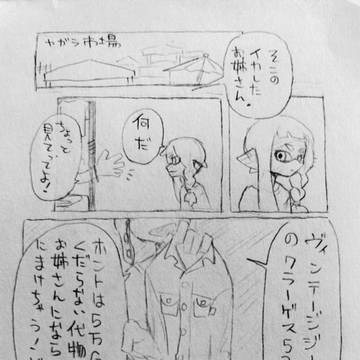 ヤガラ市場
そこの
イカした
お姉さん。
何だ
ちょっと
見てってよ!
ヴィンテージ
のクラーゲス5
ホントは5万
くだらない代物
お姉さんになら
にまけちゃう!